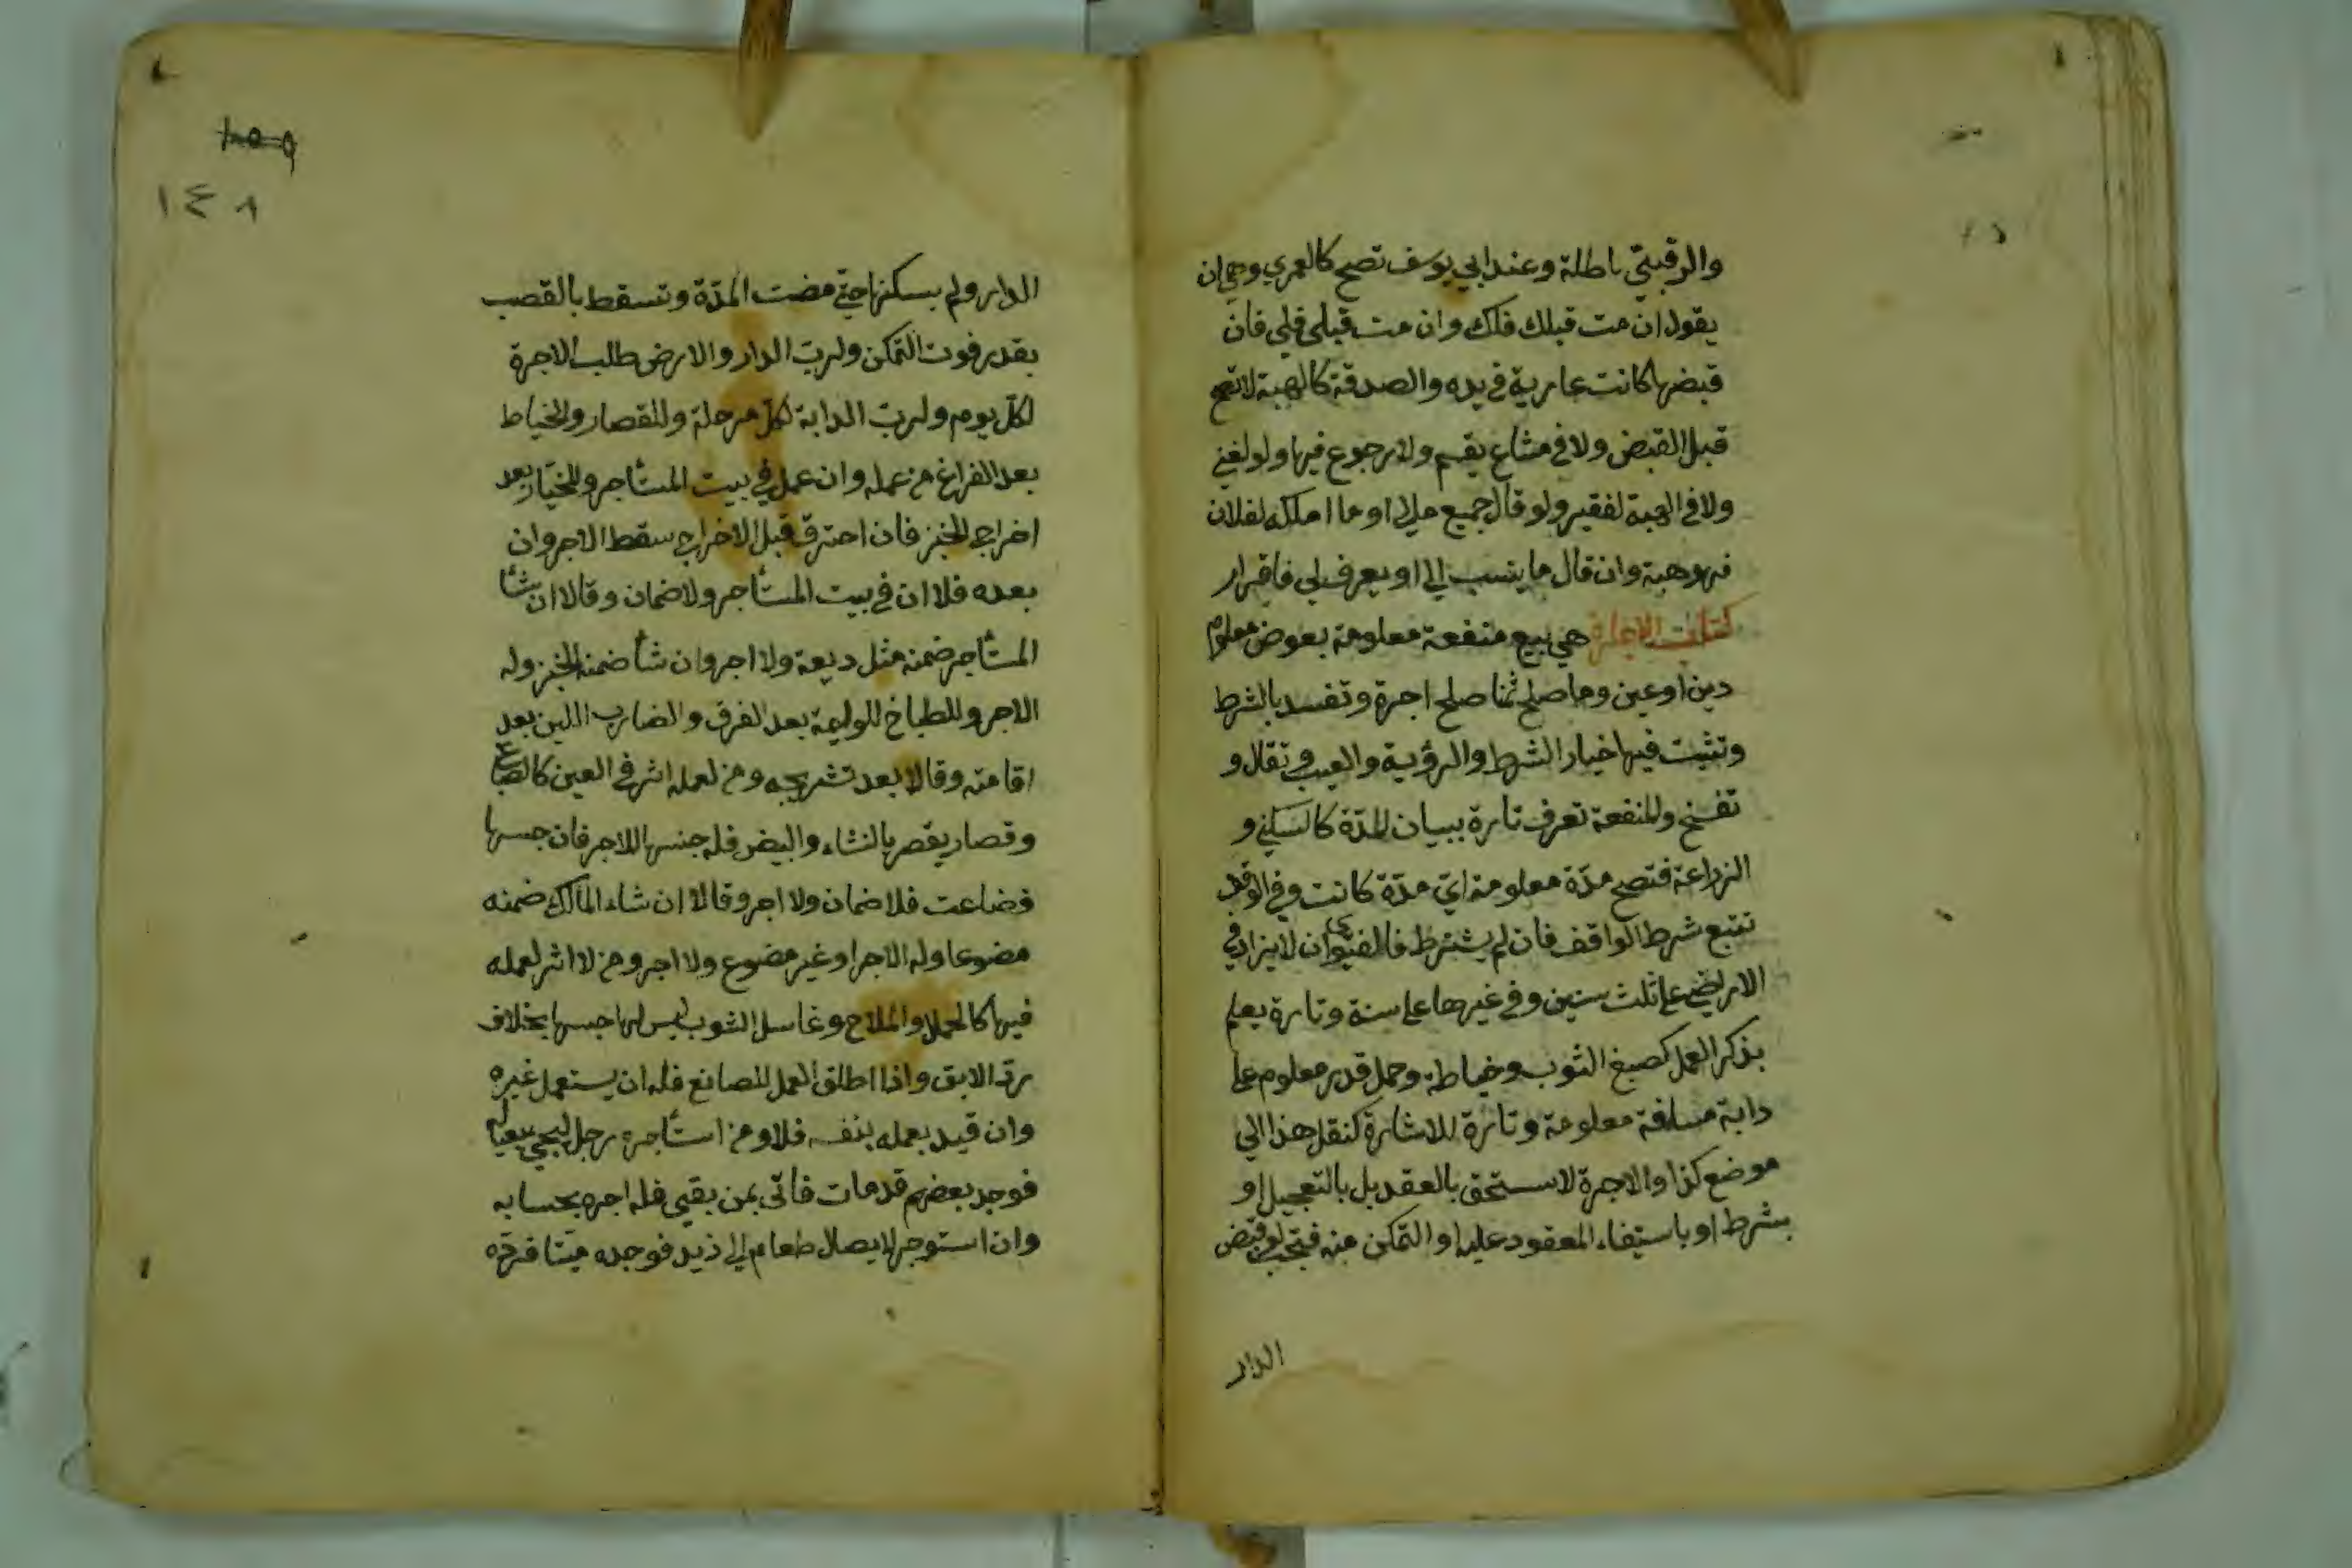 والرقبتي باطلة وعند ابي يوسف تصح كالعمري وهي ان
يقول ان مت قبلك فلك وان مت قبلي فلي فان
قبضها كانت عارية في يده والصدقة كالهبة لا تصح
قبل القبض ولا في مشاع يقسم ولا رجوع فيها ولو لغني
ولا في الهبة لفقير ولو قال جميع مالي او ما املكه لفلان
فهو هبة وان قال ما ينسب الي او يعرف لي فاقرار
كتاب الاجارة هي بيع منفعة معلومة بعوض معلوم
دين او عين وما صلح ثمنا صلح اجرة وتفسد بالشرط
وتثبت فيها خيار الشرط والرؤية والعيب وتقال و
تفسخ والمنفعة تعرف تارة ببيان المدّة كالسكني و
الزراعة فتصح مدّة معلومة ايّ مدّة كانت وفي الوقف
تتبع شرط الواقف فان لم يشترط فالفتوي ان لا يزاد في
الاراضي علي ثلث سنين وفي غيرها علي سنة وتارة يعلم
بذكر العمل كصبغ الثوب وخياطة وحمل قدر معلوم علي
دابة مسافة معلومة وتارة للاشارة كنقل هذا الي
موضع كذا والاجرة لا ستحق بالعقد بل بالتعجيل او
بشرط او باستيفاء المعقود عليه او التمكن منه فتجب لو قبض
الدار
١٤٨
الدار ولم يسكنها حتي مضت المدّة وتسقط بالقصب
بقدر فوت التمكن ولربّ الدار والارض طلب الاجرة
لكلّ يوم ولربّ الدابة لكلّ مرحلة وللقصار والخياط
بعد الفراغ من عمله وان عمل في بيت المستأجر وللخباز بعد
اخراج الخبز فان احترق قبل الاخراج سقط الاجر وان
بعده فلا ان في بيت المستأجر ولا ضمان وقالا ان شأ
المستأجر ضمنه مثل ديعة ولا اجر وان شأ ضمنه الخبز وله
الاجر وللطباخ للوليمة بعد الغرف والضارب اللبن بعد
اقامته وقالا بعد تشريجه ومن لعمله اثر في العين كالصباغ
وقصار يقصر بالنشاء والبيض فله جنسها للاجر فان حبسها
فضاعت فلا ضمان ولا اجر وقالا ان شاء المالك ضمنه
مضوعا وله الاجر او غير مضوع ولا اجر ومن لا اثر لعمله
فيها كالحمال والملاح وغاسل الثوب ليس لها حبسها بخلاف
ردّ الابق واذا اطلق العمل للصانع فله ان يستعمل غيره
وان قيد بعمله بنفسه فلا ومن استأجره رجل ليجي بعياله
فوجد بعضهم قد مات فاتي بمن بقيي فله اجره بحسابه
وان استوجر لايصال طعام الي زيد فوجده ميتا فردّه